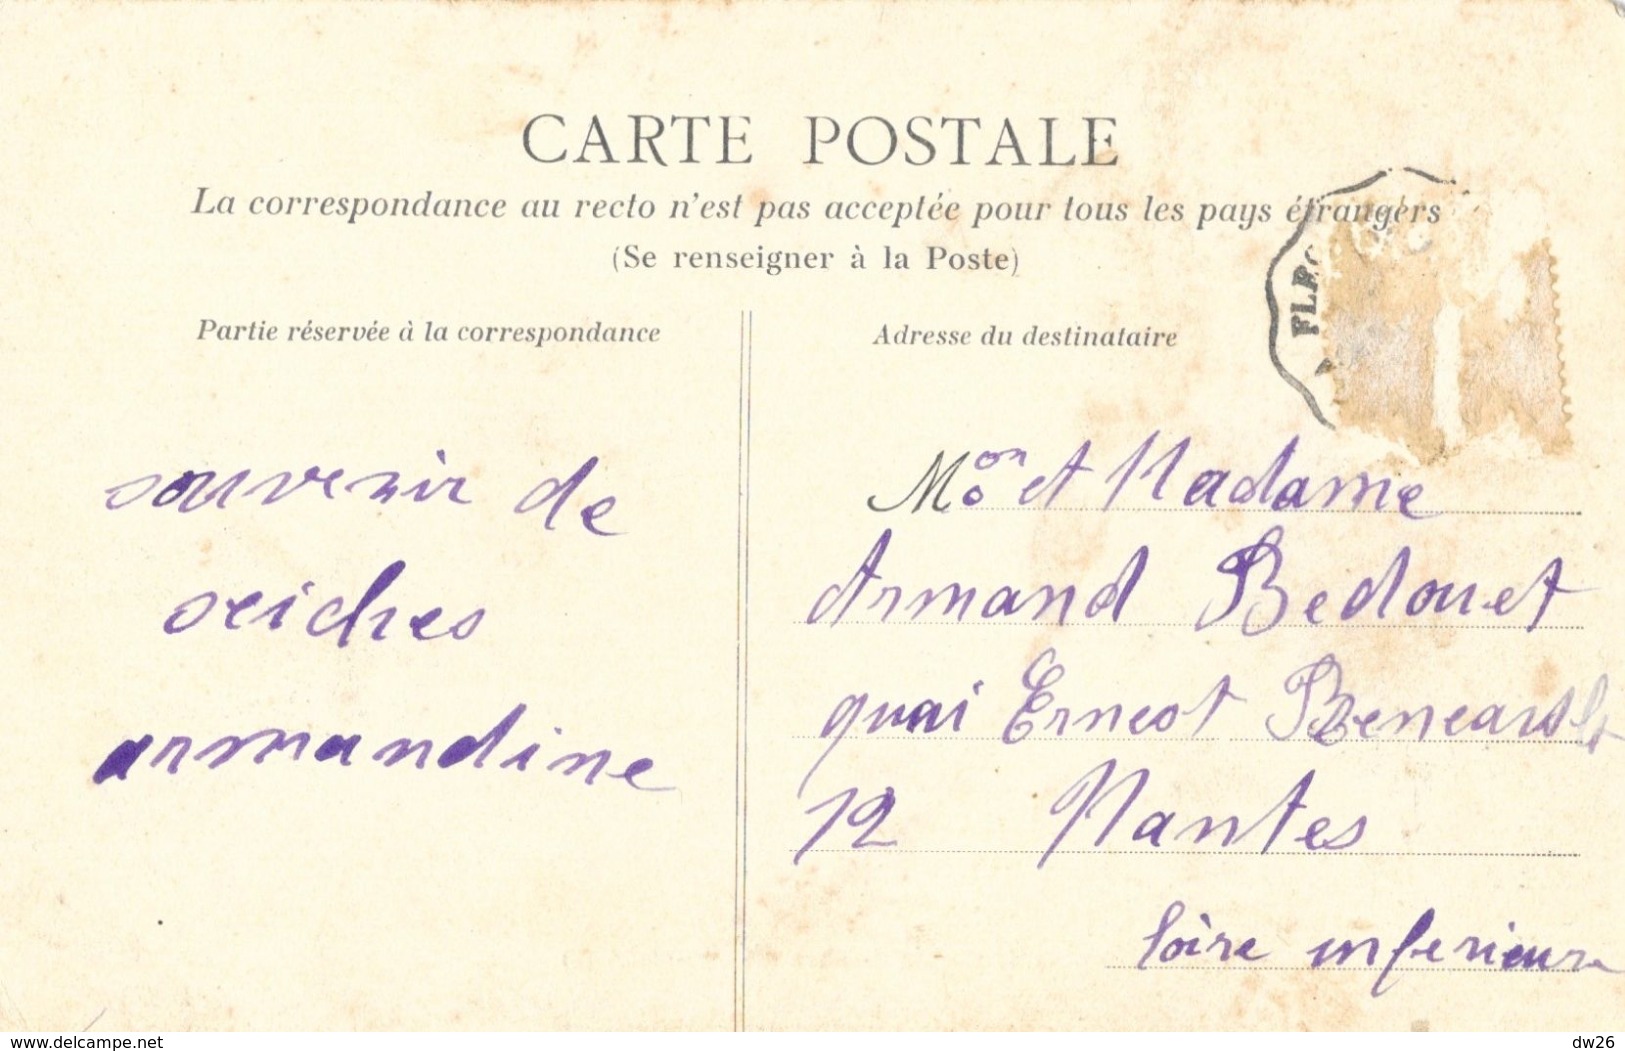 CARTE POSTALE
La correspondance au recto n'est pas acceptée pour tous les pays étrangers
(Se renseigner à la Poste)
Partie réservée à la correspondance
souvenir de
seiches
armandine
Adresse du destinataire
FLEC
Mon et Madame
Armand Bedouet
quai Ernest
12 Nantes
loire inferieure
www.delcampe.net
dw26